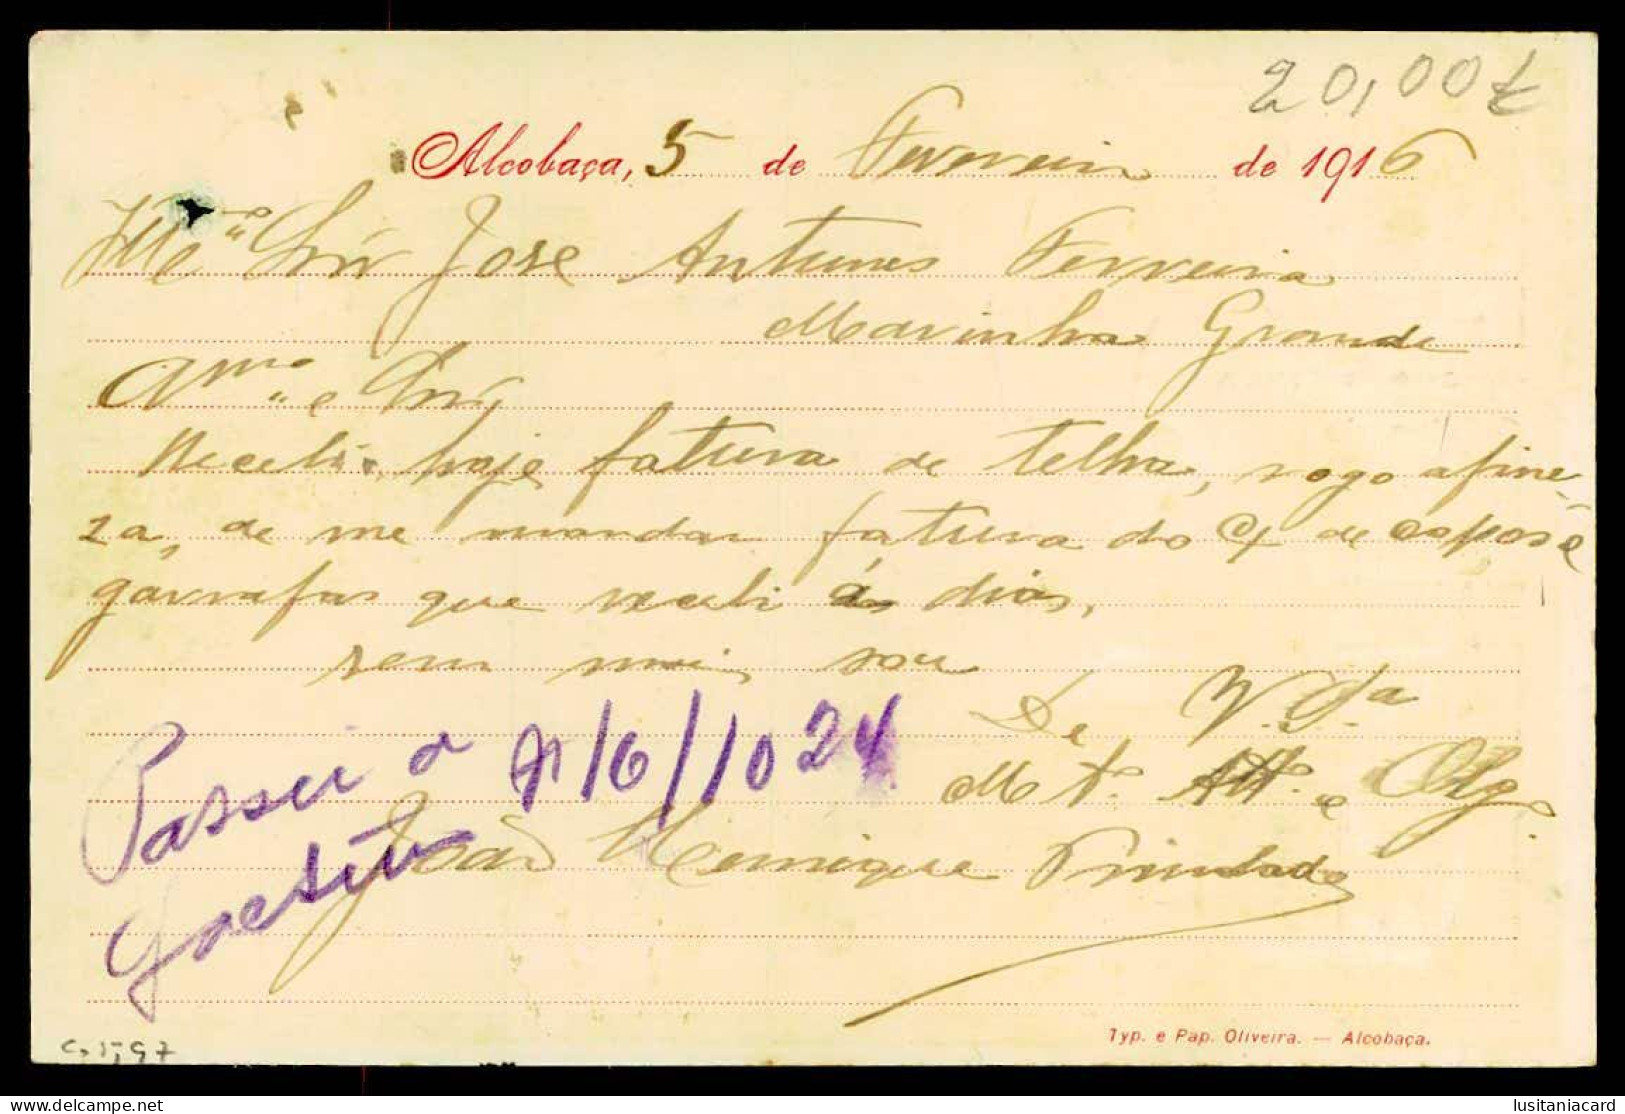 20,00
Alcobaça, 5 de Fevereiro de 1916
Illmº Snr José Antunes Ferreira
Marinha Grande
Amº e Snr
Recebi hoje fatura de telha, rogo a fine-
za, de me mandar fatura do de copos e
garrafas que recebi ás dias,
sem mais sou
De V. S.ª
Mtº Attº e Obgº
João Henrique Trindade
Passei a
nº 16/10 24
Typ. e Pap. Oliveira. — Alcobaça.
lusitaniacard